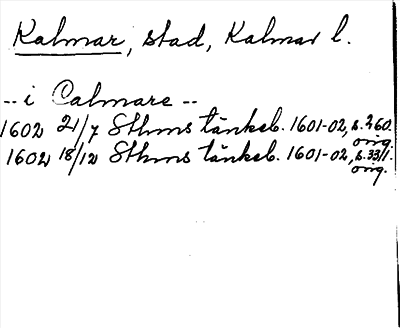 Kalmar, stad, Kalmar l.
-- i Calmare --
1602 21/7 Sthms tänkeb. 1601-02, s. 260.
orig.
1602 18/12 Sthms tänkeb. 1601-02, s. 331.
orig.